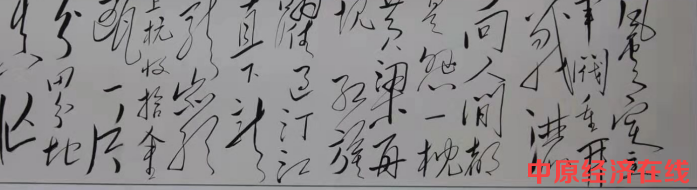 风云突变
军阀重开
战洒
向人间都
是怨一枕
黄粱再
现红旗
跃过汀江
直下龙
岩
上杭收拾金
瓯一片
分田分地
真忙
中原经济在线